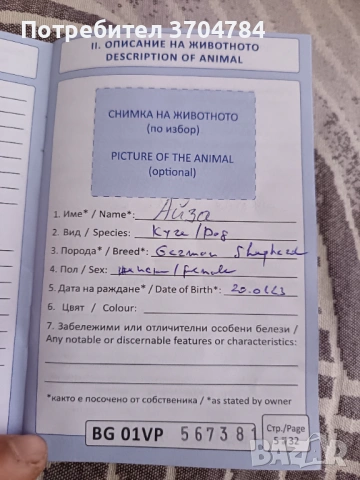 Потребител 3704784
II. ОПИСАНИЕ НА ЖИВОТНОТО
DESCRIPTION OF ANIMAL
СНИМКА НА ЖИВОТНОТО
(по избор)
PICTURE OF THE ANIMAL
(optional)
1. Име* / Name*: Айза
2. Вид / Species: Куче / Dog
3. Порода* / Breed*: German Shepherd
4. Пол / Sex: женски / female
5. Дата на раждане* / Date of Birth*:
6. Цвят / Colour:
7. Забележими или отличителни особени белези /
Any notable or discernable features or characteristics:
*както е посочено от собственика / *as stated by owner
BG 01VP 567381
Стр./Page
5/32
BAZAR